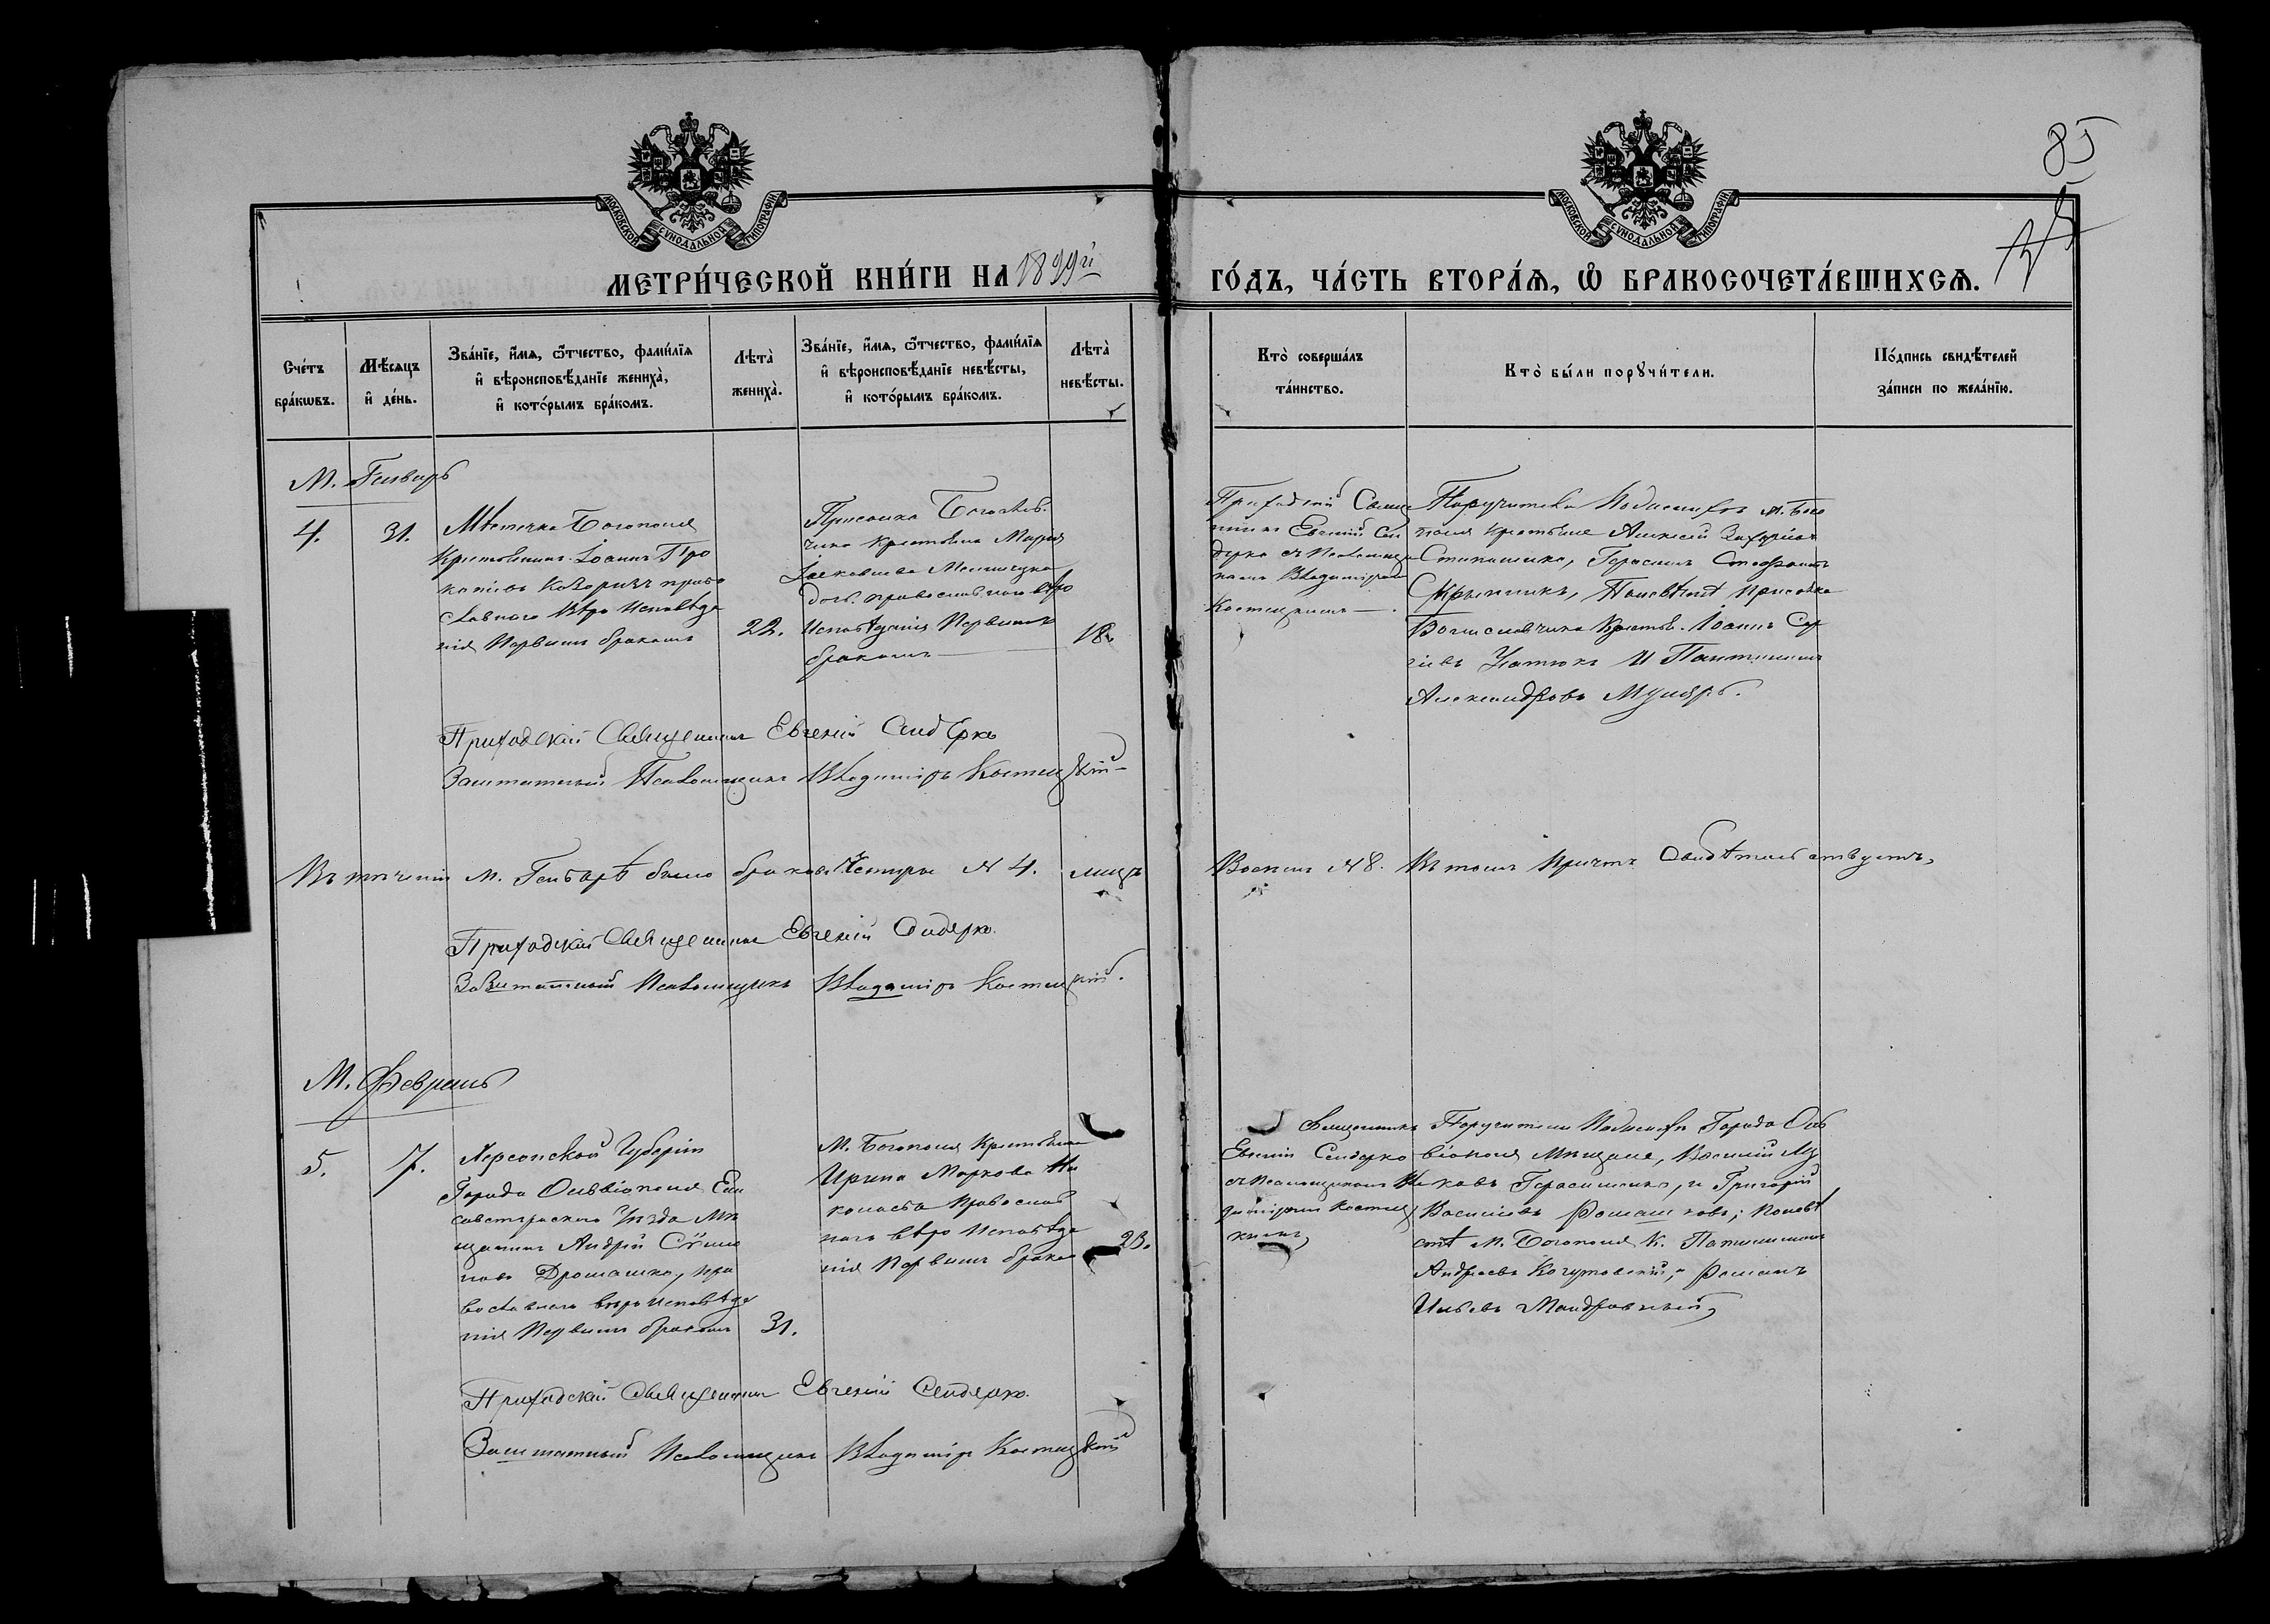 85
МОСКОВСКОЙ СУНОДАЛЬНОЙ ТИПОГРАФІИ
МОСКОВСКОЙ СУНОДАЛЬНОЙ ТИПОГРАФІИ
МЕТРИ́ЧЕСКОЙ КНИ́ГИ НА 1899й
ГО́ДЪ, ЧА́СТЬ ВТОРА́Ѧ, Ѽ БРАКОСОЧЕТА́ВШИХСѦ.
Сче́тъ
бра́кѡвъ.
Мѣ́сѧцъ
и҆ де́нь.
Зва́нїе, и҆́мѧ, ѻ҆́тчество, фами́лїѧ
и҆ вѣроисповѣ́данїе жениха̀,
и҆ кото́рымъ бра́комъ.
Лѣта̀
жениха̀.
Зва́нїе, и҆́мѧ, ѻ҆́тчество, фами́лїѧ
и҆ вѣроисповѣ́данїе невѣ́сты,
и҆ кото́рымъ бра́комъ.
Лѣта̀
невѣ́сты.
Кто̀ соверша́лъ
та́инство.
Кто̀ бы́ли порꙋчи́тели.
По́дпись свидѣ́телей
за́писи по жела́нїю.
М. Генварь
4.
31.
Мѣстечка Богополя
Крестьянинъ Іоаннъ Про
копіевъ православ
славнаго Вѣро Исповѣда
нія Первымъ бракомъ
22.
Присілка
чика Крестьянка Марія
дочь. православнаго вѣро
Исповѣданія Первымъ
бракомъ
18.
Приходскій Свяще
нникъ Евгеній Сен
дерко съ Псаломщи
комъ Владиміромъ
Костецкимъ
Поручители По женихѣ м. Бого
поля крестьяне Алексей
Герасимъ Стефановъ
Скрыпникъ, По невѣстѣ присѣлка
Крестьян. Іоаннъ Сер
гіевъ И Пантелеим
Александровъ
Приходскій Священникъ Евгеній Сендерко
Заштатный Псаломщикъ Владиміръ Костецкій
Въ теченіи м. Генварѣ было браковъ Четыре № 4. лицъ
Восемь № 8. Въ томъ Причтъ Свидѣтельствуетъ,
Приходскій Священникъ Евгеній Сендерко
Заштатный Псаломщикъ Владиміръ Костецкій.
М. Февраль
5.
7.
Херсонской Губерніи
Города Ольвіополя Ели
саветградскаго Уѣзда Мѣ
щанинъ Андрей
новъ Дромашко, пра
вославнаго вѣро исповѣда
нія Первымъ бракомъ
31.
М. Богополя Крестьянка
Ирина Маркова
православ
наго вѣро Исповѣда
нія Первымъ браком
23.
Священникъ
Евгеній Сендерко
съ Псаломщикомъ Вла
диміромъ Костец
кимъ,
Поручители По женихѣ Города Оль
віополя Мѣщане, Василій
Герасименко, и Григорій
Васильевъ Ромашковъ; По невѣ
стѣ М. Богополя К. Пантелеимон
Андреевъ Романъ
Ильевъ Мандровный,
Приходскій Священникъ Евгеній Сендерко.
Заштатный Псаломщикъ Владиміръ Костецкій